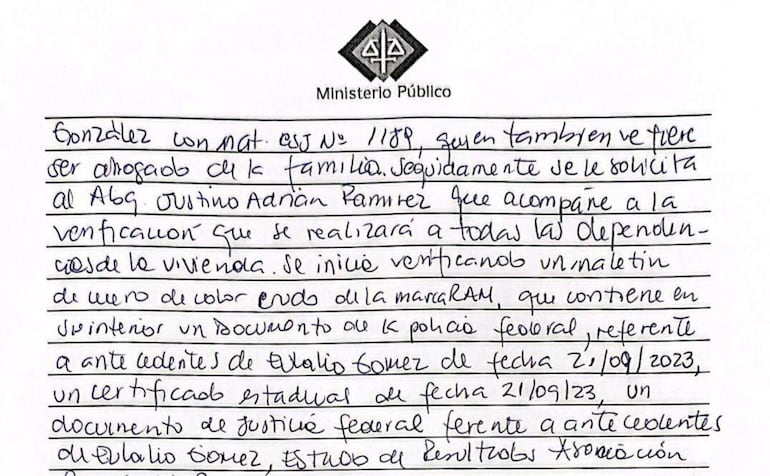 Ministerio Público
González con mat. CSJ Nº 1189, quien tambien refiere
ser abogado de la familia. Seguidamente se le solicita
al Abg. Justino Adrián Ramirez que acompañe a la
verificación que se realizará a todas las dependen-
cias de la vivienda. Se inicia verificando un maletin
de cuero de color crudo de la marca RAM, que contiene en
su interior un documento de la policia federal, referente
a antecedentes de Eulalio Gomez de fecha 21/09/2023,
un certificado estadual de fecha 21/09/23, un
documento de Justicia federal ferente a antecedentes
de Eulalio Gomez, Estado de Resultados Asociación